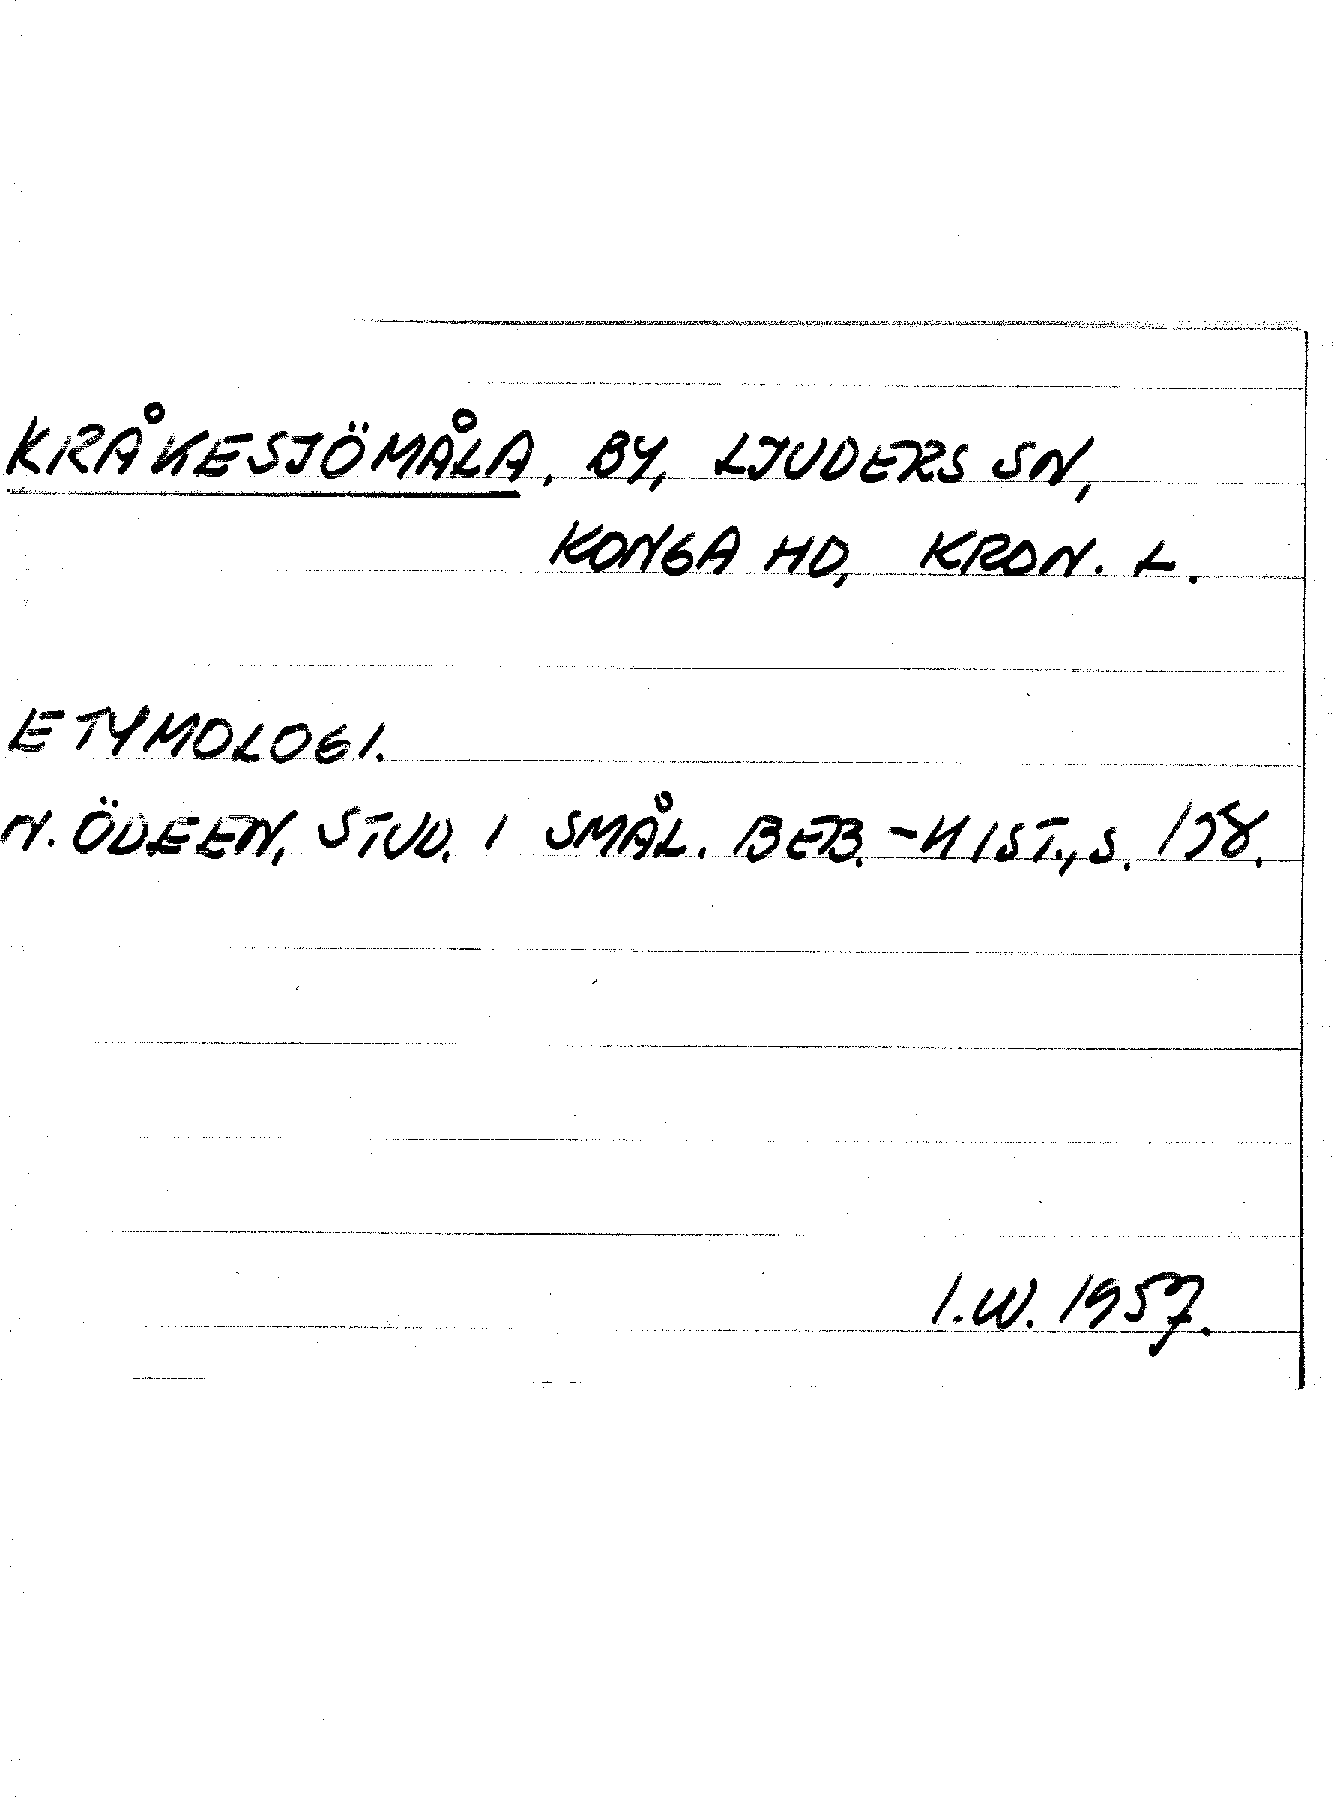 KRÅKESJÖMÅLA, BY, LJUDERS SN,
KONGA HD, KRON. L.
ETYMOLOGI.
N. ÖDEEN, STUD. I SMÅL. BEB.-HIST., S.
I.W. 1957.